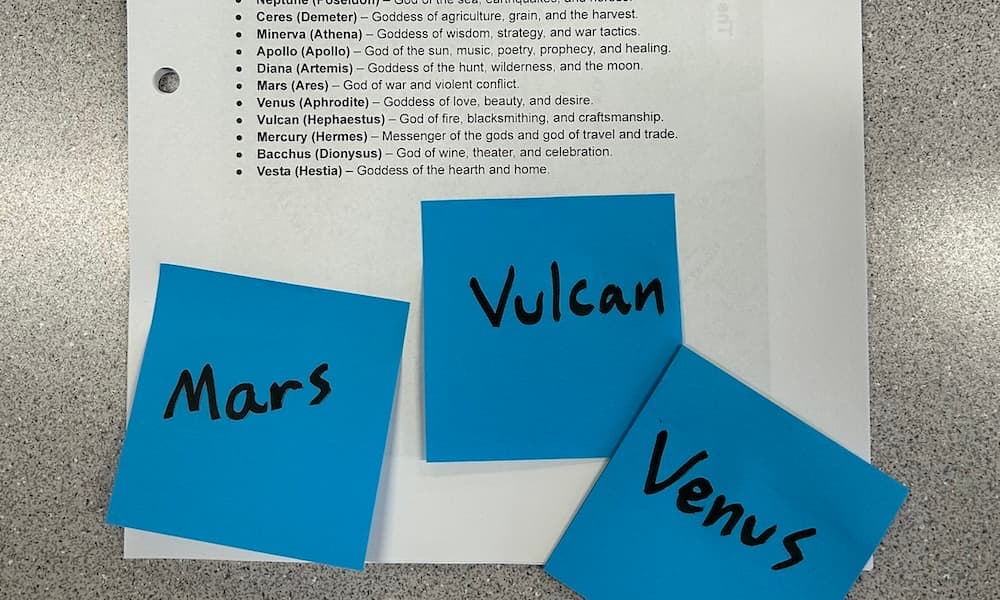 Neptune (Poseidon) – God of the sea, earthquakes, and horses.
Ceres (Demeter) – Goddess of agriculture, grain, and the harvest.
Minerva (Athena) – Goddess of wisdom, strategy, and war tactics.
Apollo (Apollo) – God of the sun, music, poetry, prophecy, and healing.
Diana (Artemis) – Goddess of the hunt, wilderness, and the moon.
Mars (Ares) – God of war and violent conflict.
Venus (Aphrodite) – Goddess of love, beauty, and desire.
Vulcan (Hephaestus) – God of fire, blacksmithing, and craftsmanship.
Mercury (Hermes) – Messenger of the gods and god of travel and trade.
Bacchus (Dionysus) – God of wine, theater, and celebration.
Vesta (Hestia) – Goddess of the hearth and home.
Vulcan
Mars
Venus